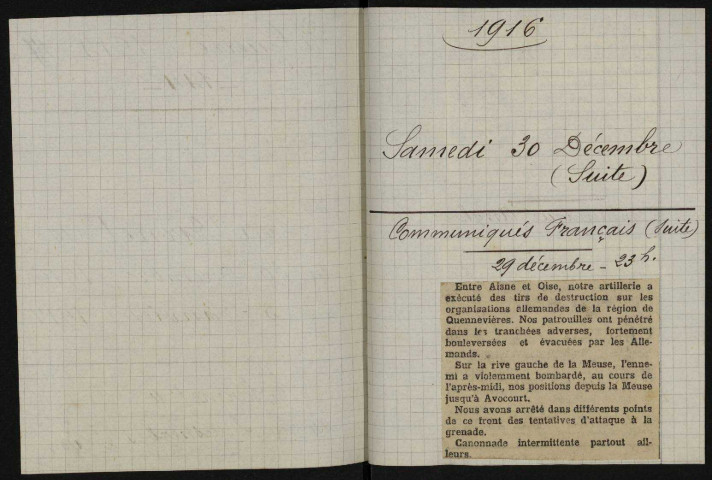 1916
Samedi 30 Décembre
(Suite)
Communiqués Français (Suite)
29 décembre - 23 h.
Entre Aisne et Oise, notre artillerie a
exécuté des tirs de destruction sur les
organisations allemandes de la région de
Quennevières. Nos patrouilles ont pénétré
dans les tranchées adverses, fortement
bouleversées et évacuées par les Alle-
mands.
Sur la rive gauche de la Meuse, l'enne-
mi a violemment bombardé, au cours de
l'après-midi, nos positions depuis la Meuse
jusqu'à Avocourt.
Nous avons arrêté dans différents points
de ce front des tentatives d'attaque à la
grenade.
Canonnade intermittente partout ail-
leurs.